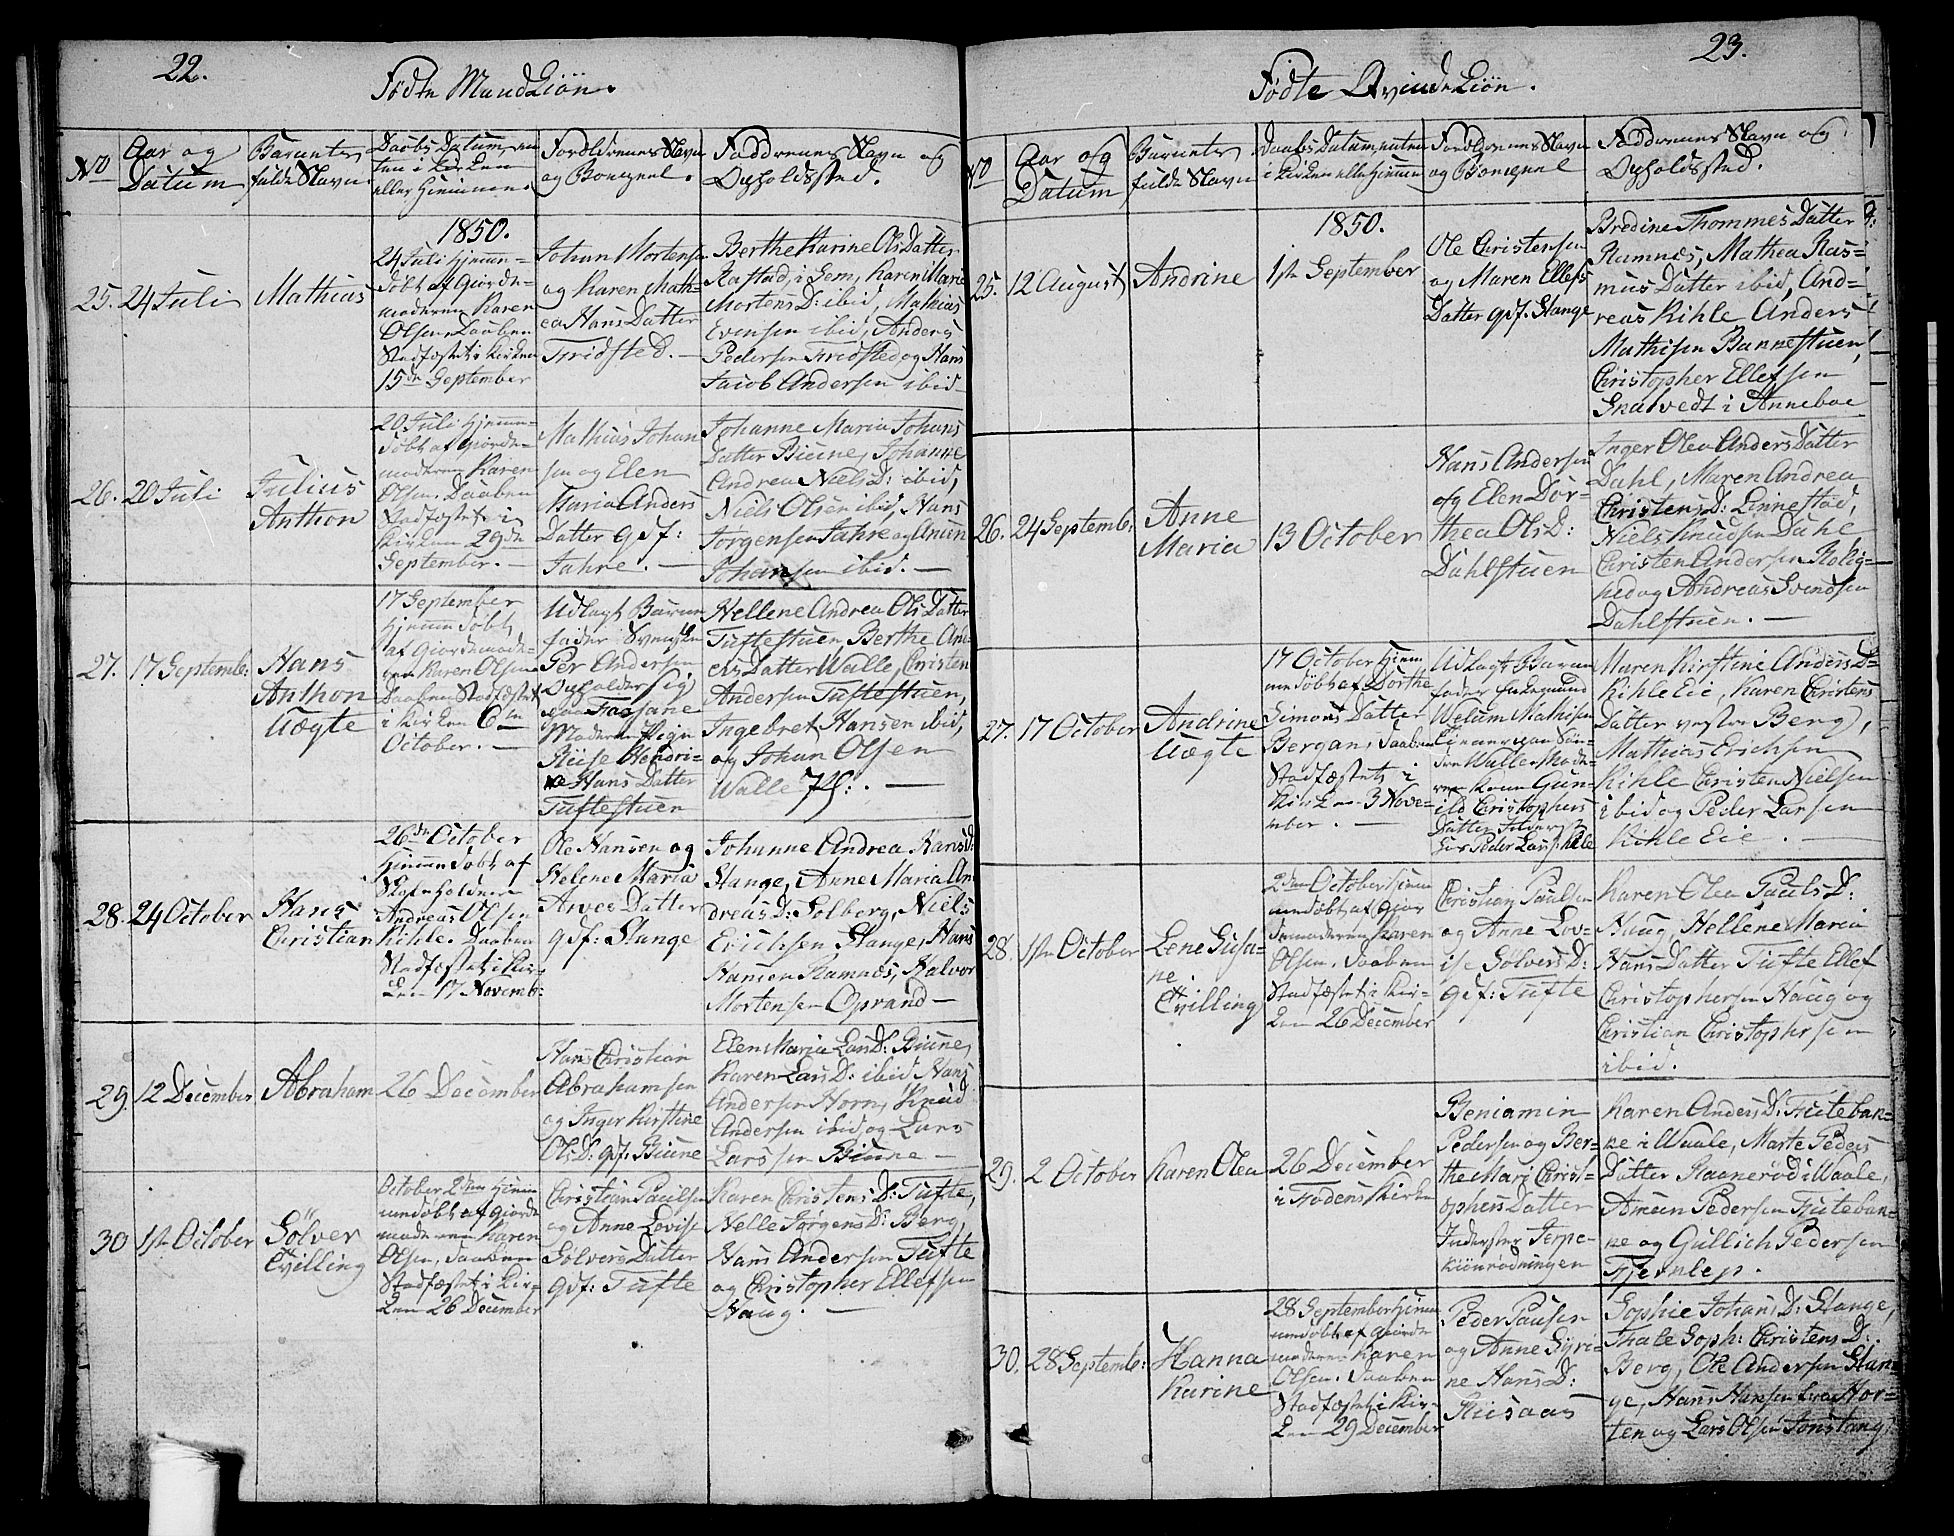 22.
Fødte MandKiøn.
No
Aar og
Datum
Barnets
fulde Navn.
Daabs Datum, en
ten i Kirken
eller Hjemme.
Forældrenes Navn
og Boepæl.
Faddrenes Navn og
Opholdssted.
1850.
25.
24 Juli
Mathias
24 Juli Hjemme
døbt af Giorde-
moderen Karen
Olsen Daaben
Stadfæstet i Kirken
15de September
Johan Mortensen
og Karen Math-
ea Hans Datter
Fridsted. —
Berthe Karine Ols Datter
Rastad i Sem, Karen Marie
Mortens D: ibid, Mathias
Evensen ibid, Anders
Pedersen Fridsted og Hans
Jacob Andersen ibid
26.
20 Juli
Julius
Anthon
20 Juli Hjemme
døbt af Giorde-
moderen Karen
Olsen. Daaben
Stadfæstet i
Kirken 29de
September. —
Mathias Johan
sen og Elen
Maria Anders
Datter gdf:
Jahre. —
Johanne Maria Johans
Datter Biune, Johanne
Andrea Niels D: ibid,
Niels Olsen ibid, Hans
Jørgensen Jahre og
Johansen ibid. —
27.
17 Septemb:
Hans
Anthon
Uægte
17 September
Hjemme døbt
af Giordemode-
ren Karen Olsen
Daaben Stadfæstet
i Kirken 6te
October. —
Udlagt Barne
fader Svensken
Per Andersen
Opholder sig
Moderen Pigen
Hendri-
Hans Datter
Tuftestuen
Hellene Andrea Ols Datter
Tuftestuen Berthe And
Datter Walle, Christen
Andersen Tuftestuen,
Ingebret Hansen ibid,
og Johan Olsen
Walle —
28.
24 October
Hans
Christian
26de October
Hjemmedøbt af
Andreas Olsen
Kihle. Daaben
Stadfæstet i Kir-
ken 17 Novemb:
Ole Hansen og
Helene Maria
Arves Datter
gdf: Slange
Johanne Andrea Hans D:
Slange, Anne Maria An
dreas D: Solberg, Niels
Erichsen Slange, Hans
Hansen Ramnæs, Halvor
Mortensen Oprand —
29.
12 December
Abraham
26 December
Hans Christian
Abrahamsen
og Inger Kirstine
Ols D: gdf. Biune
Elen Maria Lars D: Biune,
Karen Lars D: ibid Hans
Andersen Horn, Knud
Andersen ibid og Lars
Larssen Biune —
30
1ste October
Sølver
Tvilling
October 2den Hjem
medøbt af Giorde
moderen Karen
Olsen, Daaben
Stadfæstet i Kir-
ken 26 December
Christian Paulsen
og Anne Lovise
Sølvers Datter
gdf: Tufte
Karen Christens D: Tufte,
Nelle Jørgens D: Berg,
Hans Andersen Tufte
og Christopher Ellefsen
Haug. —
23.
Fødte QvindeKiøn.
No
Aar og
Datum
Barnets
fulde Navn
Daabs Datum, enten
i Kirken elle Hjemme
Forældrenes Navn
og Boepæl
Faddrenes Navn og
Opholdssted.
1850.
25.
12 August
Andrine
1ste September
Ole Christensen
og Maren Ellefs
Datter gdf. Slange
Bredine Thommes Datter
Ramnæs, Mathea Ras-
mus Datter ibid, And-
reas Kihle Anders
Mathisen Bannestuen,
Christopher Ellefsen
Snatvedt i Anneboe
26.
24 Septemb:
Anne
Maria
13 October
Hans Andersen
og Elen Dor-
thea Ols D:
Dahlstuen
Inger Olea Anders Datter
Dahl, Maren Andrea
Christens D: Linnestad,
Niels Knudsen Dahl
Christen Andersen Rolig-
hed og Andreas Svendsen
Dahlstuen. —
27.
17 October
Andrine
Uægte
17 October Hjem
me døbt af Dorthe
Simons Datter
Bergan, Daaben
Stadfæstet i
Kirken 3 Nove-
mber. —
Udlagt Barne
fader
Welum Mathisen
Walle Mode-
ren Kone Gun-
ild Christophers
Datter
Peder Lars: Kihle
Maren Kirstine Anders D:
Kihle Eie, Karen Christens
Datter vestre Berg,
Mathias Erichsen
Kihle Christen Nielsen
ibid og Peder Larsen
Kihle Eie. —
28.
1ste October
Lene Susa-
ne
Tvilling
2den October Hjem
medøbt af Gior
demoderen Karen
Olsen. Daaben
Stadfæstet i Kir-
ken 26 December
Christian Paulsen
og Anne Lov-
ise Sølvers D:
gdf: Tufte
Karen Olea Pauls D:
Haug, Hellene Maria
Hans Datter Tufte Ellef
Christophersen Haug og
Christian Christophersen
ibid.
29.
2 October
Karen Olea
26 December
i Fodens Kirke
Beniamin
Pedersen og Ber-
the Mari Christ-
ophers Datter
Inderster Jerpe-
kiønrødningen
Karen Anders D: Futeban-
ne i Waale, Marte Peders
Datter Raanerød i Waale,
Amun Pedersen Futeban-
ne og Gullich Pedersen
Fjernlep.
30.
28 Septemb:
Hanna
Karine
28 September Hjem
medøbt af Giorde
moderen Karen
Olsen. Daaben
Stadfæstet i Kir-
ken 29 December
Peder Paulsen
og Anne Syri-
ne Hans D:
Riisaas
Sophie Johans D: Slange,
Thale Soph: Christens D:
Berg, Ole Andersen Slan-
ge, Hans Hansen fra Hor-
ten og Lars Olsen Jonstang